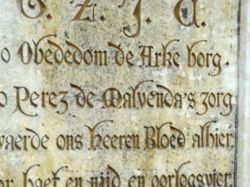 G. Z. J. C.
o Obededom de Arke borg.
o Perez de Malvenda's zorg
waerde ons heeren Bloed alhier,
or haet en nijd en oorlogsvier